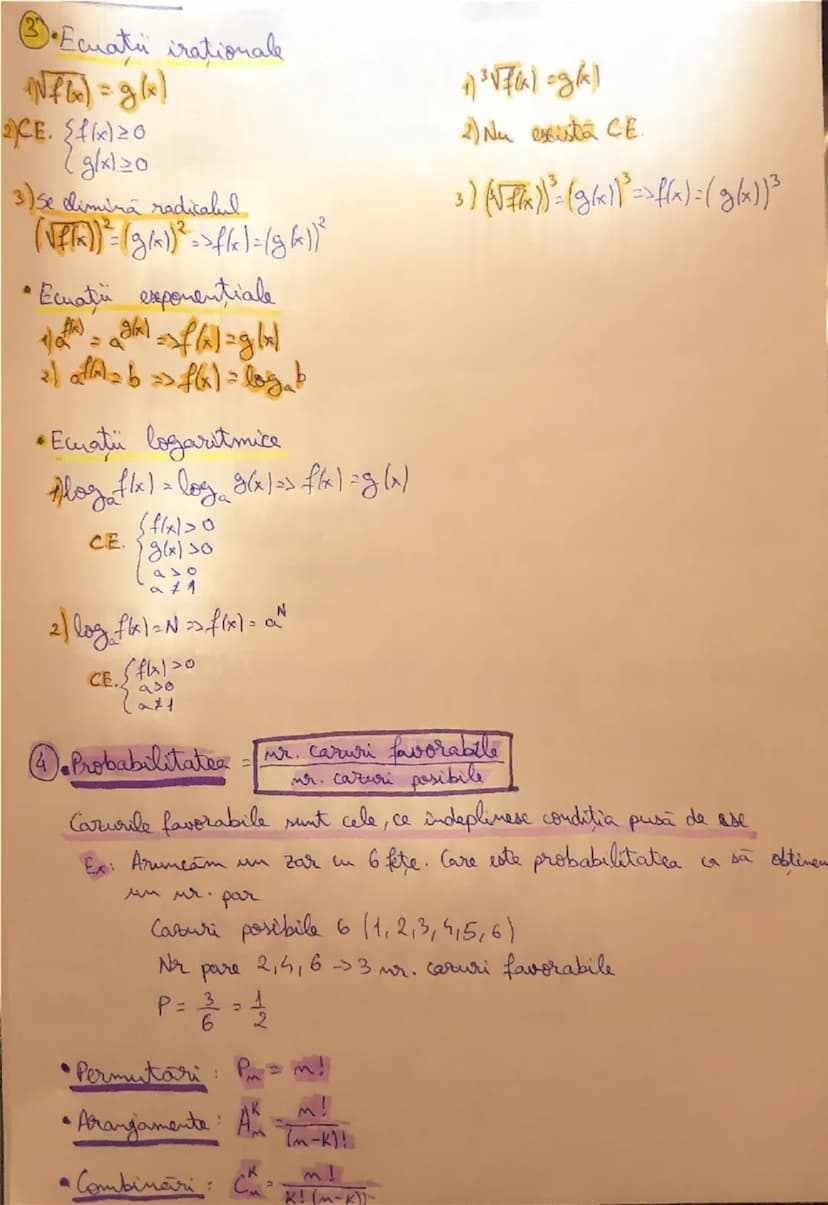 ③ • Ecuații iraționale
1) √f(x) = g(x)
2) CE. { f(x) ≥ 0
g(x) ≥ 0
3) Se elimină radicalul
(√f(x))² = (g(x))² => f(x) = (g(x))²
1) ³√f(x) = g(x)
2) Nu există CE.
3) (³√f(x))³ = (g(x))³ => f(x) = (g(x))³
• Ecuații exponențiale
1) a^f(x) = a^g(x) => f(x) = g(x)
2) a^f(x) = b => f(x) = logₐ b
• Ecuații logaritmice
1) logₐ f(x) = logₐ g(x) => f(x) = g(x)
CE. { f(x) > 0
g(x) > 0
a > 0
a ≠ 1
2) logₐ f(x) = N => f(x) = a^N
CE. { f(x) > 0
a > 0
a ≠ 1
④ • Probabilitatea = nr. cazuri favorabile
nr. cazuri posibile
Cazurile favorabile sunt cele, ce îndeplinesc condiția pusă de
Ex: Aruncăm un zar cu 6 fețe. Care este probabilitatea ca să obținem
un nr. par
Cazuri posibile 6 (1, 2, 3, 4, 5, 6)
Nr pare 2, 4, 6 -> 3 nr. cazuri favorabile
P = 3/6 = 1/2
• Permutări : Pₙ = n!
• Aranjamente : Aₙᵏ = n!/(n-k)!
• Combinări : Cₙᵏ = n!/k!(n-k)!